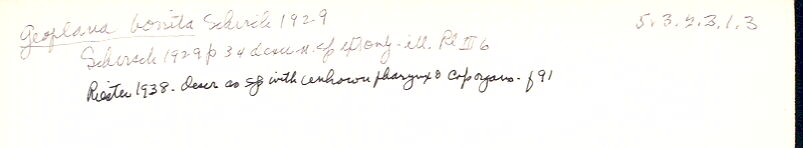 Geoplana bonita Schirch 1929 5.3.2.3.1.3
Schirch 1929 p 34 descr. n. sp extrony - ill. Pl III 6
Riester 1938. descr as sp with unknown pharynx & cop organs. f 91